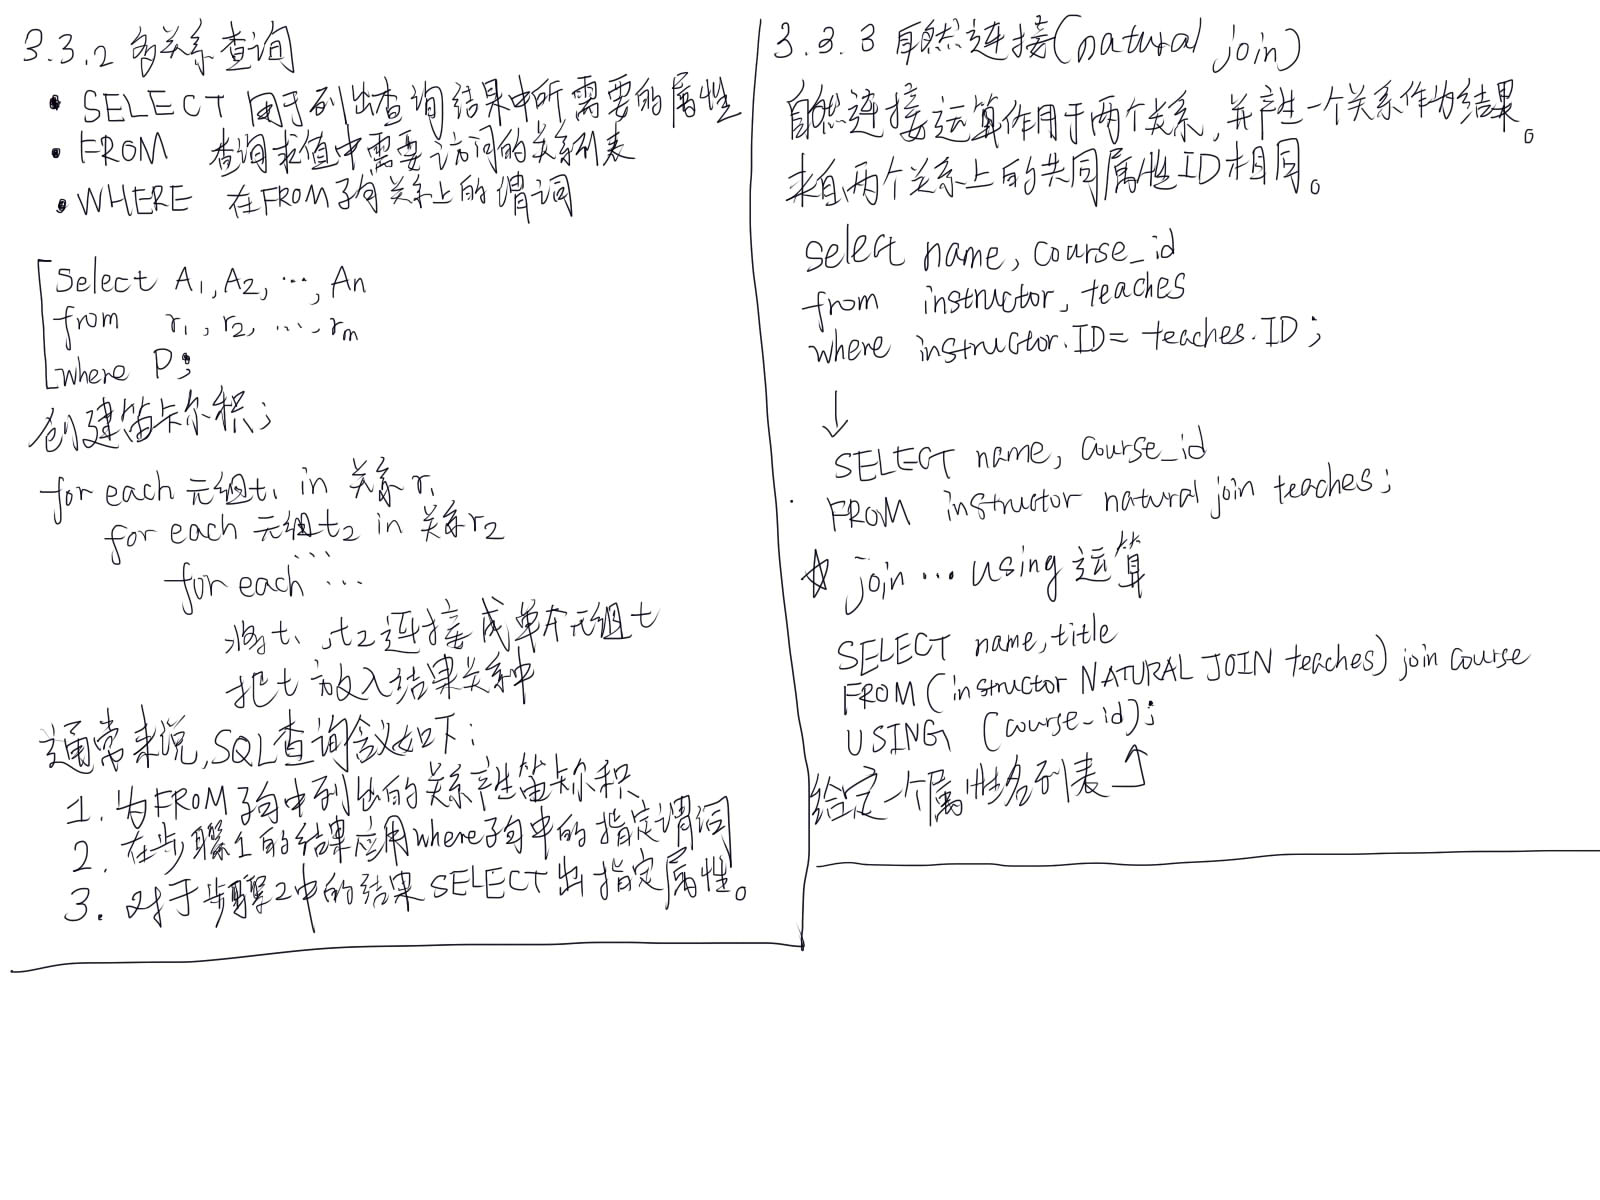 3.3.2 多关系查询
• SELECT 用于列出查询结果中所需要的属性
• FROM 查询求值中需要访问的关系列表
• WHERE 在FROM子句关系上的谓词
Select A1, A2, ..., An
from r1, r2, ..., rm
where P;
创建笛卡尔积;
for each 元组t1 in 关系r1
for each 元组t2 in 关系r2
...
for each ...
将t1, t2连接成单个元组t
把t放入结果关系中
通常来说,SQL查询含义如下:
1. 为FROM子句中列出的关系产生笛卡尔积
2. 在步骤1的结果应用where子句中的指定谓词
3. 对于步骤2中的结果SELECT出指定属性。
3.3.3 自然连接(natural join)
自然连接运算作用于两个关系,并产生一个关系作为结果。
来自两个关系上的共同属性ID相同。
select name, course_id
from instructor, teaches
where instructor.ID= teaches.ID;
↓
SELECT name, course_id
FROM instructor natural join teaches;
☆ join ... using 运算
SELECT name,title
FROM (instructor NATURAL JOIN teaches) join course
USING (course_id);
给定一个属性名列表↑